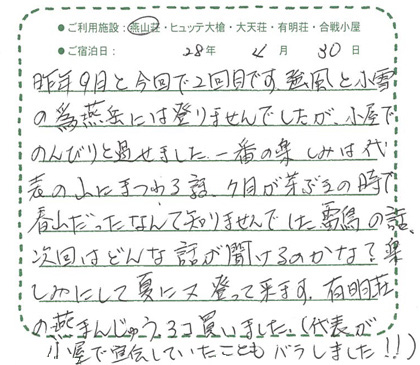 ●ご利用施設：燕山荘・ヒュッテ大槍・大天荘・有明荘・合戦小屋
●ご宿泊日： 28年 4月 30日
昨年9月と今回で2回目です。強風と小雪
の為燕岳には登りませんでしたが、小屋で
のんびりと過せました。一番の楽しみは代
表の山にまつわる話、4月が芽ぶきの時で
春山だったなんて知りませんでした。雷鳥の話、
次回はどんな話が聞けるのかな？楽
しみにして夏に又登って来ます。有明荘
の燕まんじゅう、3コ買いました。（代表が
小屋で宣伝していたこともバラしました!!）